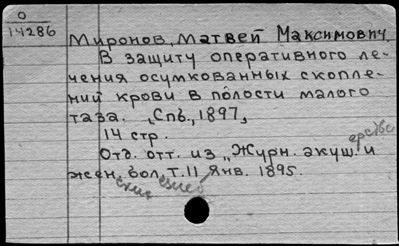 0
14286
Миронов, Матвей Максимович
В защиту оперативного ле-
чения осумкованных скопле-
ний крови в полости малого
таза. „Спб., 1897„
14 стр.
Отд. отт. из „Журн. акуш. и
жен. бол. т. 11 Янв. 1895.